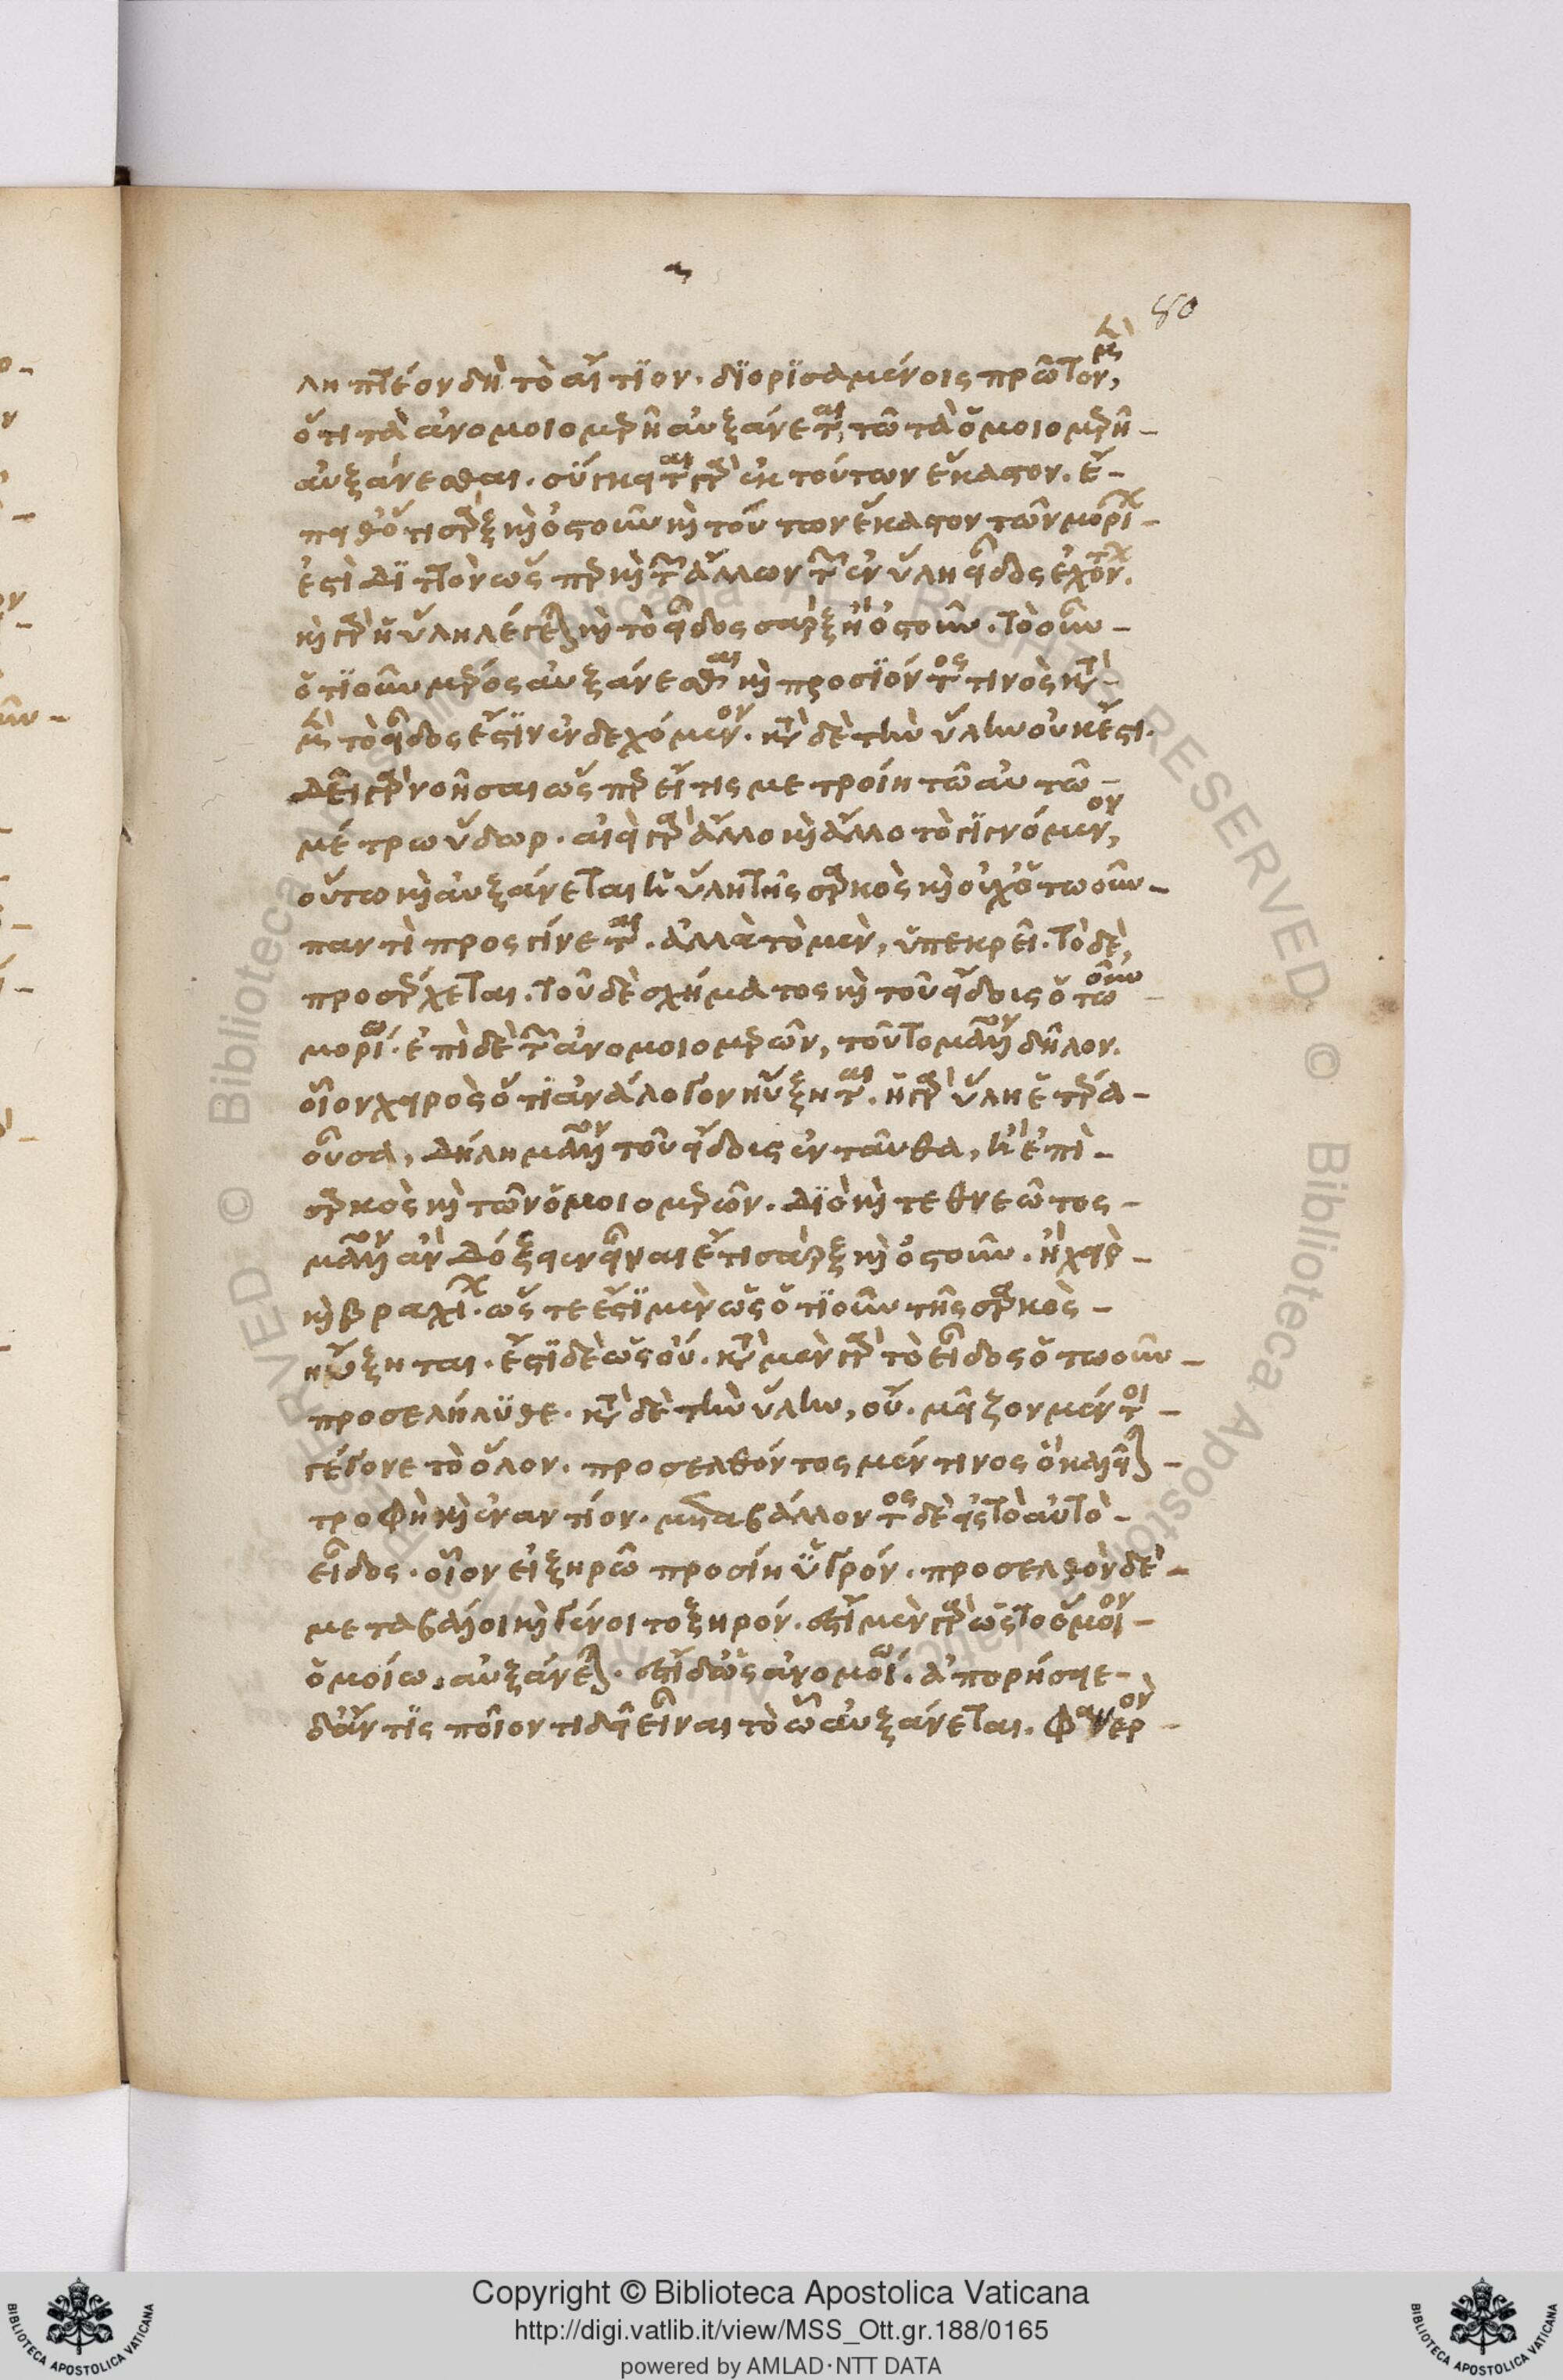 80
ληπτέον δὴ τὸ αἴτιον. διορισαμένοις πρῶτον, ἓν μὲν
ὅτι τὰ ἀνομοιομερῆ αὐξάνεται, τῶ τὰ ὁμοιομερῆ -
αὐξάνεσθαι. σύγκειται γὰρ ἐκ τούτων ἕκαστον. ἔ-
πειθ' ὅτι σὰρξ καὶ ὀστοῦν καὶ τούτων ἕκαστον τῶν μορίων -
ἐστὶ διττὸν ὥσπερ καὶ τῶν ἄλλων τῶν ἐν ὕλη εἶδος ἐχόντων.
καὶ γὰρ ἡ ὕλη λέγεται καὶ τὸ εἶδος σὰρξ ἢ ὀστοῦν. τὸ οὖν -
ὁτιοῦν μέρος αὐξάνεσθαι καὶ προσιόντος τινὸς κατὰ -
μὲν τὸ εἶδος ἐστὶν ἐνδεχόμενον. κατὰ δὲ τὴν ὕλην οὐκ ἔστι.
δεῖ γὰρ νοῆσαι ὥσπερ εἴ τις μετροίη τῶ αὐτῶ -
μέτρω ὕδωρ. ἀεὶ γὰρ ἄλλο καὶ ἄλλο τὸ γινόμενον,
οὕτω καὶ αὐξάνεται ἡ ὕλη τῆς σαρκὸς καὶ οὐχ ὁτωοῦν -
παντὶ προσγίνεται. ἀλλὰ τὸ μὲν, ὑπεκρεῖ. τὸ δὲ,
προσέρχεται. τοῦ δὲ σχήματος καὶ τοῦ εἴδους ὁτωοῦν -
μορίω. ἐπὶ δὲ τῶν ἀνομοιομερῶν, τοῦτο μᾶλλον δῆλον.
οἷον χειρὸς ὅτι ἀνάλογον ηὔξηται. ἡ γὰρ ὕλη ἑτέρα -
οὖσα, δήλη μᾶλλον τοῦ εἴδους ἐνταῦθα, ἢ ἐπὶ -
σαρκὸς καὶ τῶν ὁμοιομερῶν. διὸ καὶ τεθνεῶτος -
μᾶλλον ἂν δόξειεν εἶναι ἔτι σὰρξ καὶ ὀστοῦν. ἢ χεὶρ -
καὶ βραχίων. ὥστε ἔστι μὲν ὡς ὁτιοῦν τῆς σαρκὸς -
ηὔξηται. ἔστι δὲ ὡς οὔ. κατὰ μὲν γὰρ τὸ εἶδος ὁτωοῦν -
προσελήλυθε. κατὰ δὲ τὴν ὕλην, οὔ. μεῖζον μέντοι -
γέγονε τὸ ὅλον. προσελθόντος μέν τινος ὃ καλεῖται -
τροφὴ καὶ ἐναντίον. μεταβάλλοντος δὲ εἰς τὸ αὐτὸ -
εἶδος. οἷον εἰ ξηρῶ προσίη ὑγρόν. προσελθὸν δὲ -
μεταβάλοι καὶ γένοιτο ξηρόν. ἔστι μὲν γὰρ ὡς τὸ ὅμοιον -
ὁμοίω αὐξάνεται. ἔστι δ' ὡς ἀνομοίω. ἀπορήσειε -
δ' ἄν τις ποῖόν τι δεῖ εἶναι τὸ ὧ αὐξάνεται. φανερὸν -
Copyright © Biblioteca Apostolica Vaticana
http://digi.vatlib.it/view/MSS_Ott.gr.188/0165
powered by AMLAD·NTT DATA